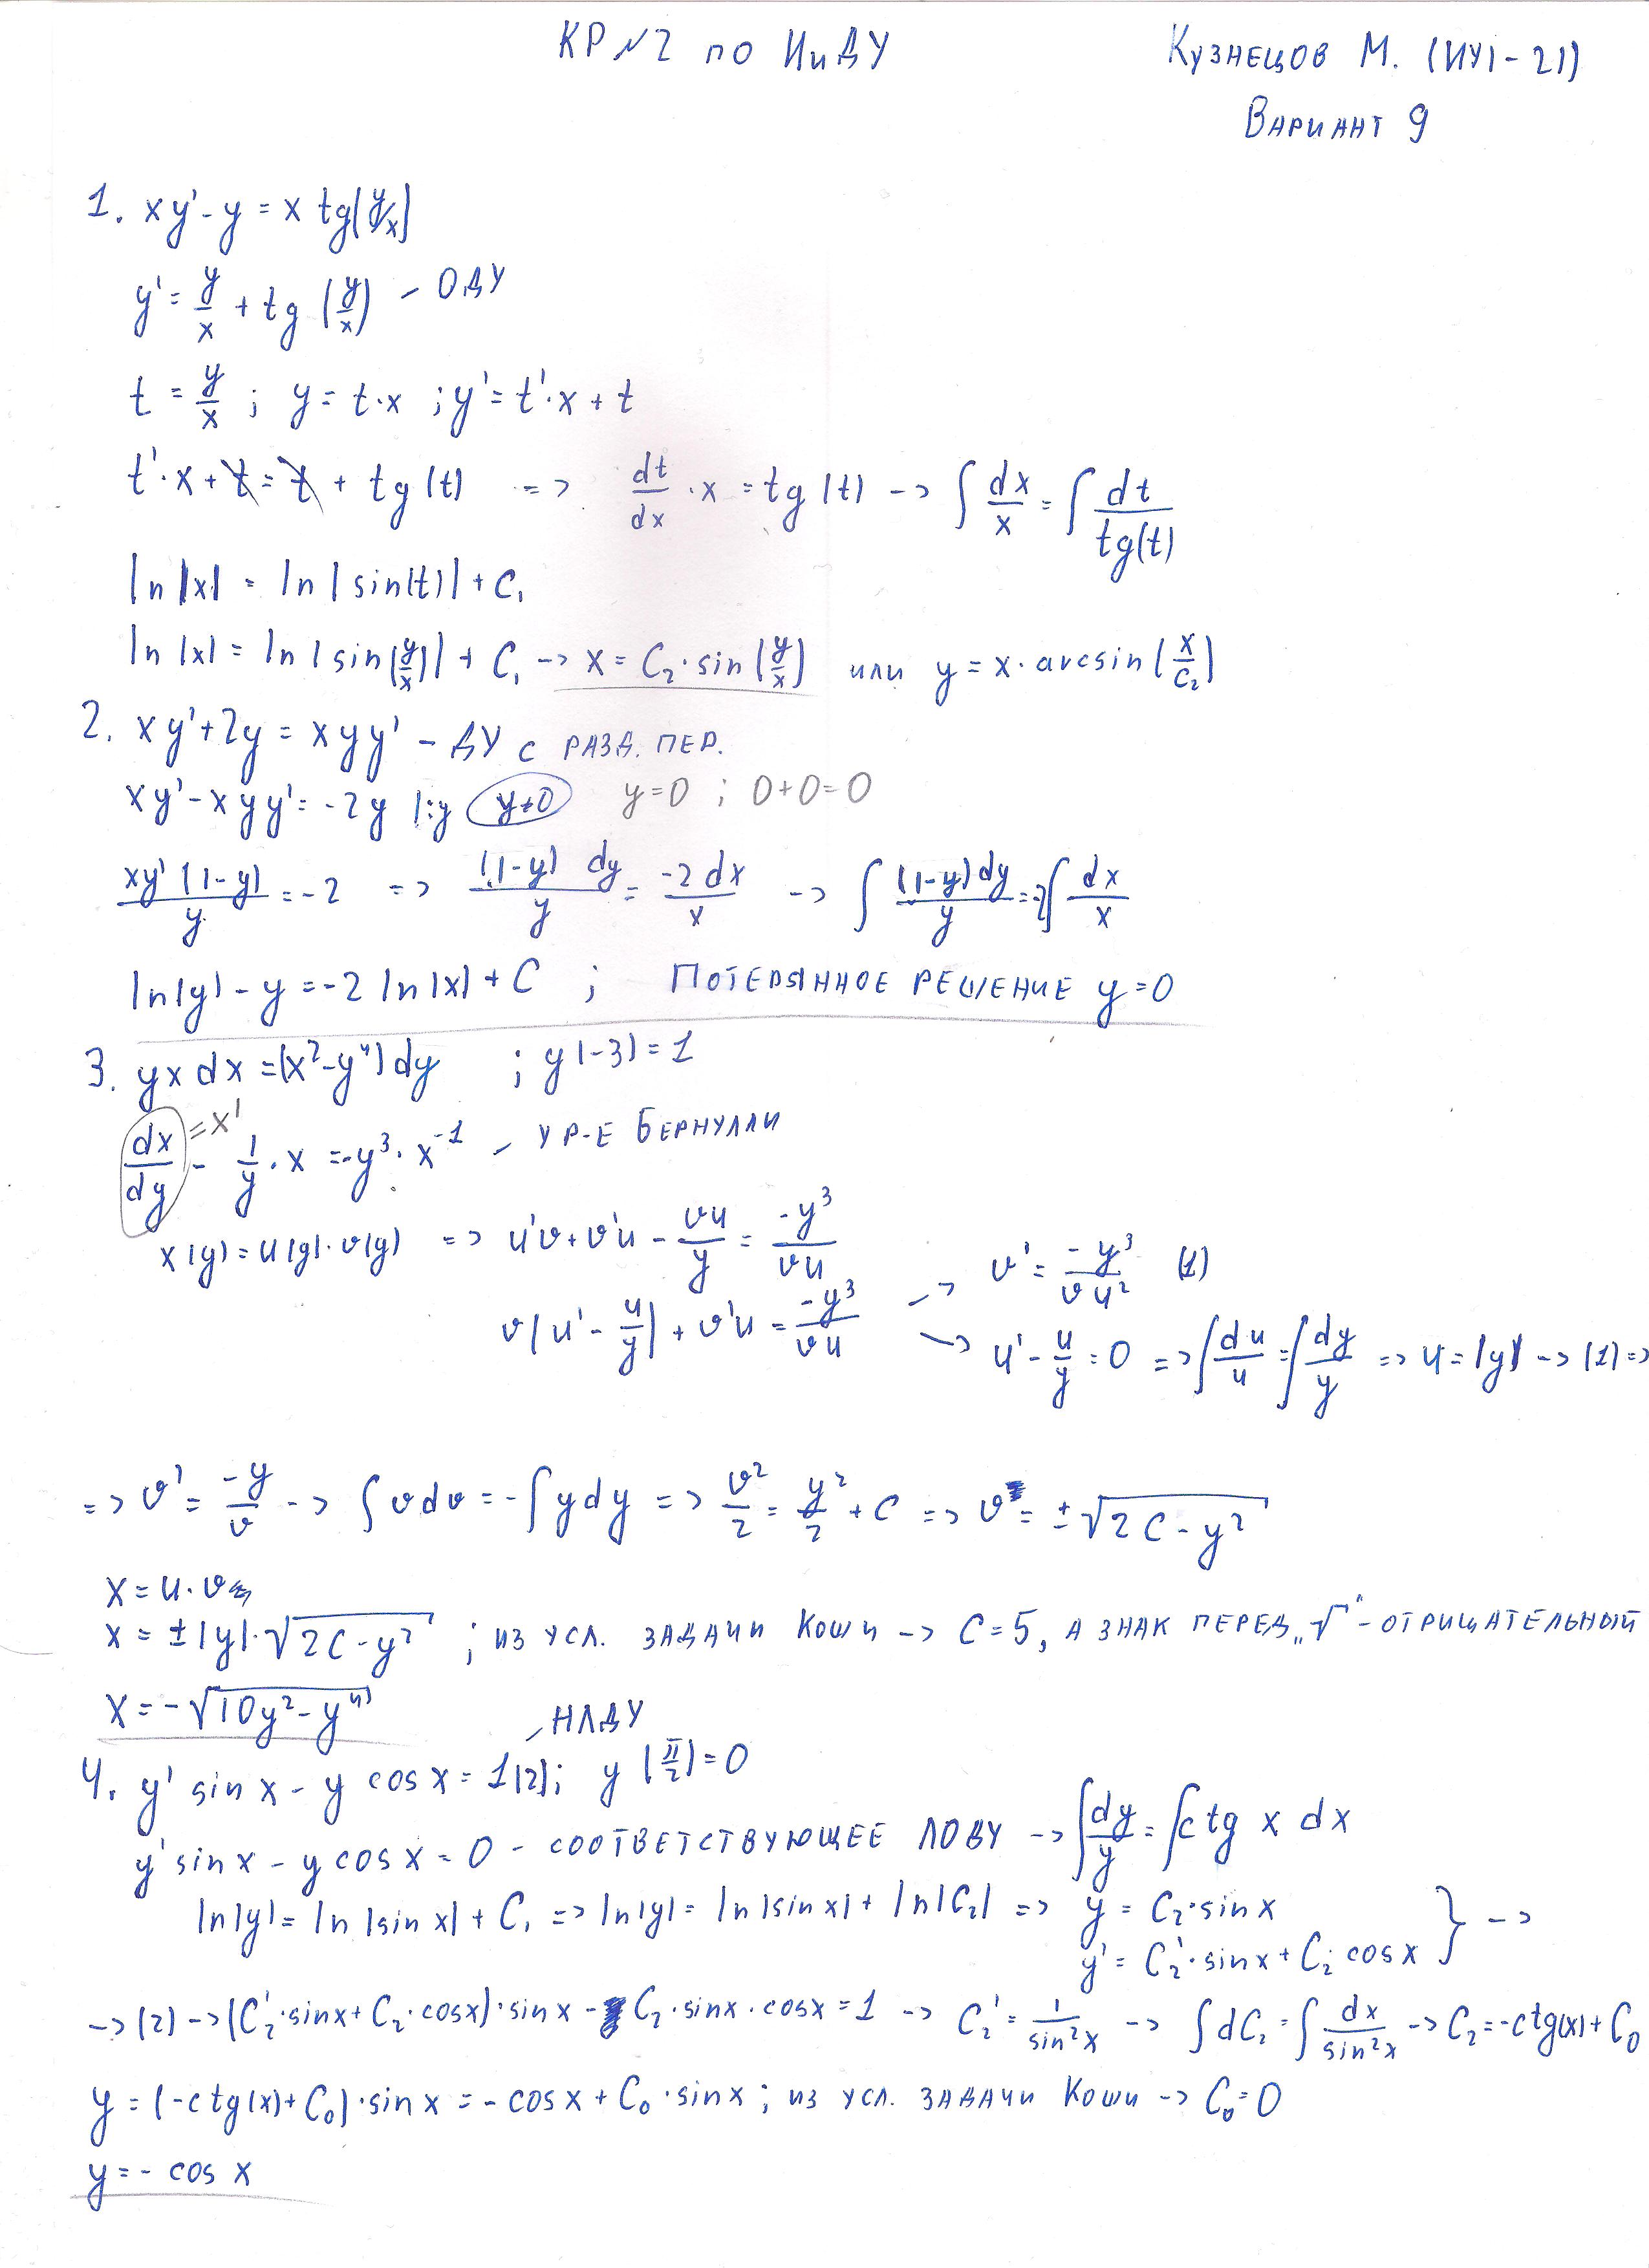 КР №2 по ИиДУ
Кузнецов М. (ИУ1-21)
Вариант 9
1. xy' - y = x tg(y/x)
y' = y/x + tg(y/x) - ОДУ
t = y/x ; y = t·x ; y' = t'·x + t
t'·x + t = t + tg(t) => dt/dx ·x = tg(t) -> ∫ dx/x = ∫ dt/tg(t)
ln|x| = ln|sin(t)| + C₁
ln|x| = ln|sin(y/x)| + C₁ -> x = C₂·sin(y/x) или y = x·arcsin(x/C₂)
2. xy' + 2y = xyy' - ДУ с разд. пер.
xy' - xyy' = -2y |:y y≠0 y=0 ; 0+0=0
xy'(1-y)/y = -2 => (1-y)dy/y = -2dx/x -> ∫ (1-y)dy/y = -2∫ dx/x
ln|y| - y = -2 ln|x| + C ; Потерянное решение y=0
3. yx dx = (x² - y⁴) dy ; y(-3) = 1
dx/dy = x' - 1/y · x = -y³ · x⁻¹ - ур-е Бернулли
x(y) = u(y)·v(y) => u'v + v'u - vu/y = -y³/vu
v(u' - u/y) + v'u = -y³/vu -> v' = -y³/vu² (1)
-> u' - u/y = 0 => ∫ du/u = ∫ dy/y => u = |y| -> (1) =>
=> v' = -y/v -> ∫ v dv = -∫ y dy => v²/2 = y²/2 + C => v = ±√(2C - y²)
x = u·v
x = ±|y|·√(2C - y²) ; из усл. задачи Коши -> C = 5, а знак перед „√" - отрицательный
x = -√(10y² - y⁴)
4. y' sin x - y cos x = 1 (2); y(π/2) = 0 - НЛДУ
y' sin x - y cos x = 0 - соответствующее ЛОДУ -> ∫ dy/y = ∫ ctg x dx
ln|y| = ln|sin x| + C₁ => ln|y| = ln|sin x| + ln|C₂| => y = C₂·sin x
y' = C₂'·sin x + C₂ cos x } ->
-> (2) -> (C₂'·sin x + C₂·cos x)·sin x - C₂·sin x·cos x = 1 -> C₂' = 1/sin²x -> ∫ dC₂ = ∫ dx/sin²x -> C₂ = -ctg(x) + C₀
y = (-ctg(x) + C₀)·sin x = -cos x + C₀·sin x ; из усл. задачи Коши -> C₀ = 0
y = - cos x